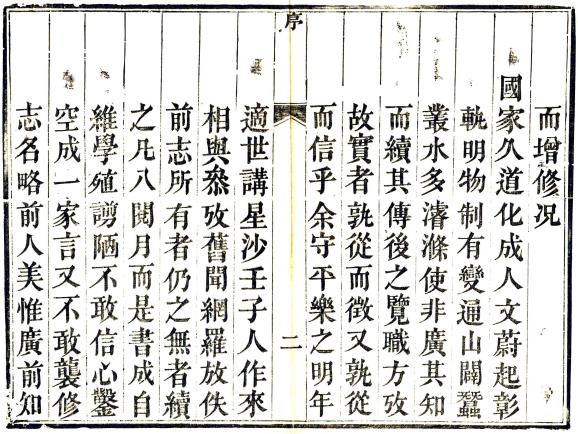 而增修况
國家久道化成人文蔚起彰
軌明物制有變通山闢蠶
叢水多濬滌使非廣其知
而續其傳後之覽職方攷
故實者孰從而徵又孰從
而信乎余守平樂之明年
序
二
適世講星沙壬子人作來
相與叅攷舊聞網羅放佚
前志所有者仍之無者續
之凡八閱月而是書成自
維學殖譾陋不敢信心鑿
空成一家言又不敢襲修
志名略前人美惟廣前知